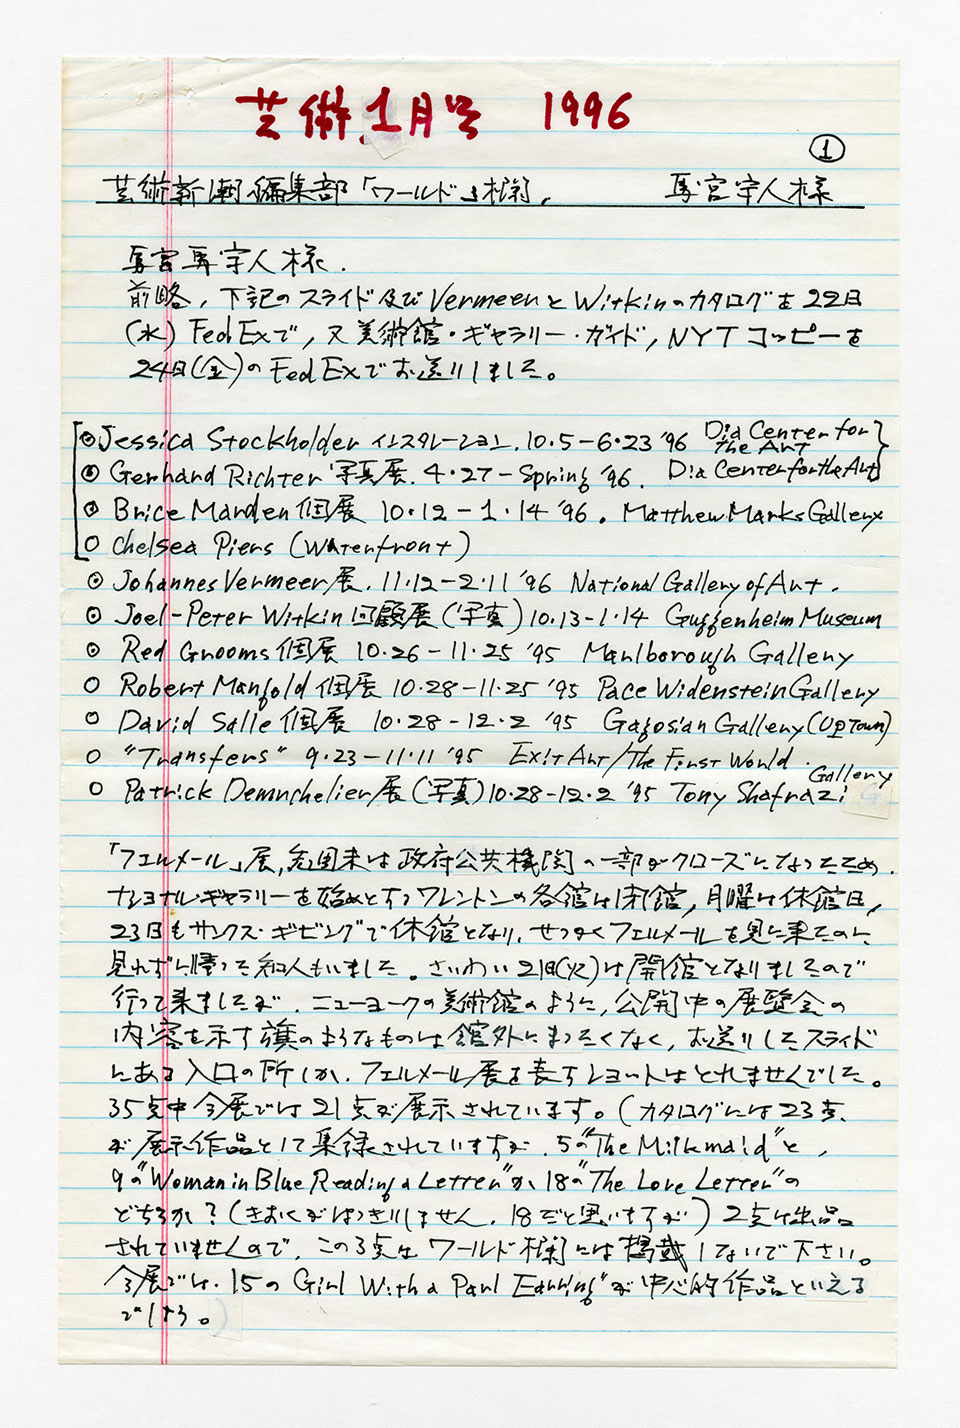 芸術1月号 1996
①
芸術新潮編集部「ワールド」欄, 馬宮守人様
馬宮守人様.
前略, 下記のスライド及びVermeerとWitkinのカタログを22日
(水) FedExで, 又美術館・ギャラリー・ガイド, NYTコッピーを
24日(金)のFedExでお送りしました。
◎Jessica Stockholder インスタレーション. 10.5-6.23 '96 Dia Center for the Art
◎Gerhard Richter 写真展. 4.27-Spring '96. Dia Center for the Art
◎Brice Marden個展 10.12-1.14 '96. Matthew Marks Gallery
○Chelsea Piers (Waterfront)
◎Johannes Vermeer展. 11.12-2.11 '96 National Gallery of Art.
◎Joel-Peter Witkin回顧展(写真)10.13-1.14 Guggenheim Museum
◎Red Grooms個展 10.26-11.25 '95 Marlborough Gallery
○Robert Mangold個展 10.28-11.25 '95 Pace Widenstein Gallery
○David Salle個展 10.28-12.2 '95 Gagosian Gallery(Up Town)
○"Transfers" 9.23-11.11 '95 Exit Art/The First World.
○Patrick Demarchelier展(写真)10.28-12.2 '95 Tony Shafrazi Gallery
「フェルメール」展, 先週末は政府公共機関の一部がクローズになったため.
ナショナル・ギャラリーを始めとするワシントンの各館は閉館, 月曜は休館日,
23日もサンクス・ギビングで休館となり, せっかくフェルメールを見に来たのに
見れずに帰った知人もいました。さいわい21日(火)は開館となりましたので
行って来ましたが. ニューヨークの美術館のように, 公開中の展覧会の
内容を示す旗のようなものは館外にまったくなく, お送りしたスライド
にある入口の所しか. フェルメール展を表すショットはとれませんでした。
35点中今展では21点が展示されています。(カタログには23点
が展示作品として集録されていますが. 5の"The Milkmaid"と,
9の"Woman in Blue Reading a Letter"か18の"The Love Letter"の
どちらか?(きおくがはっきりしません. 18だと思いますが)2点は出品
されていませんので, この3点はワールド欄には掲載しないで下さい。
今展では. 15のGirl With a Parl Earring"が中心的作品といえる
でしょう。)